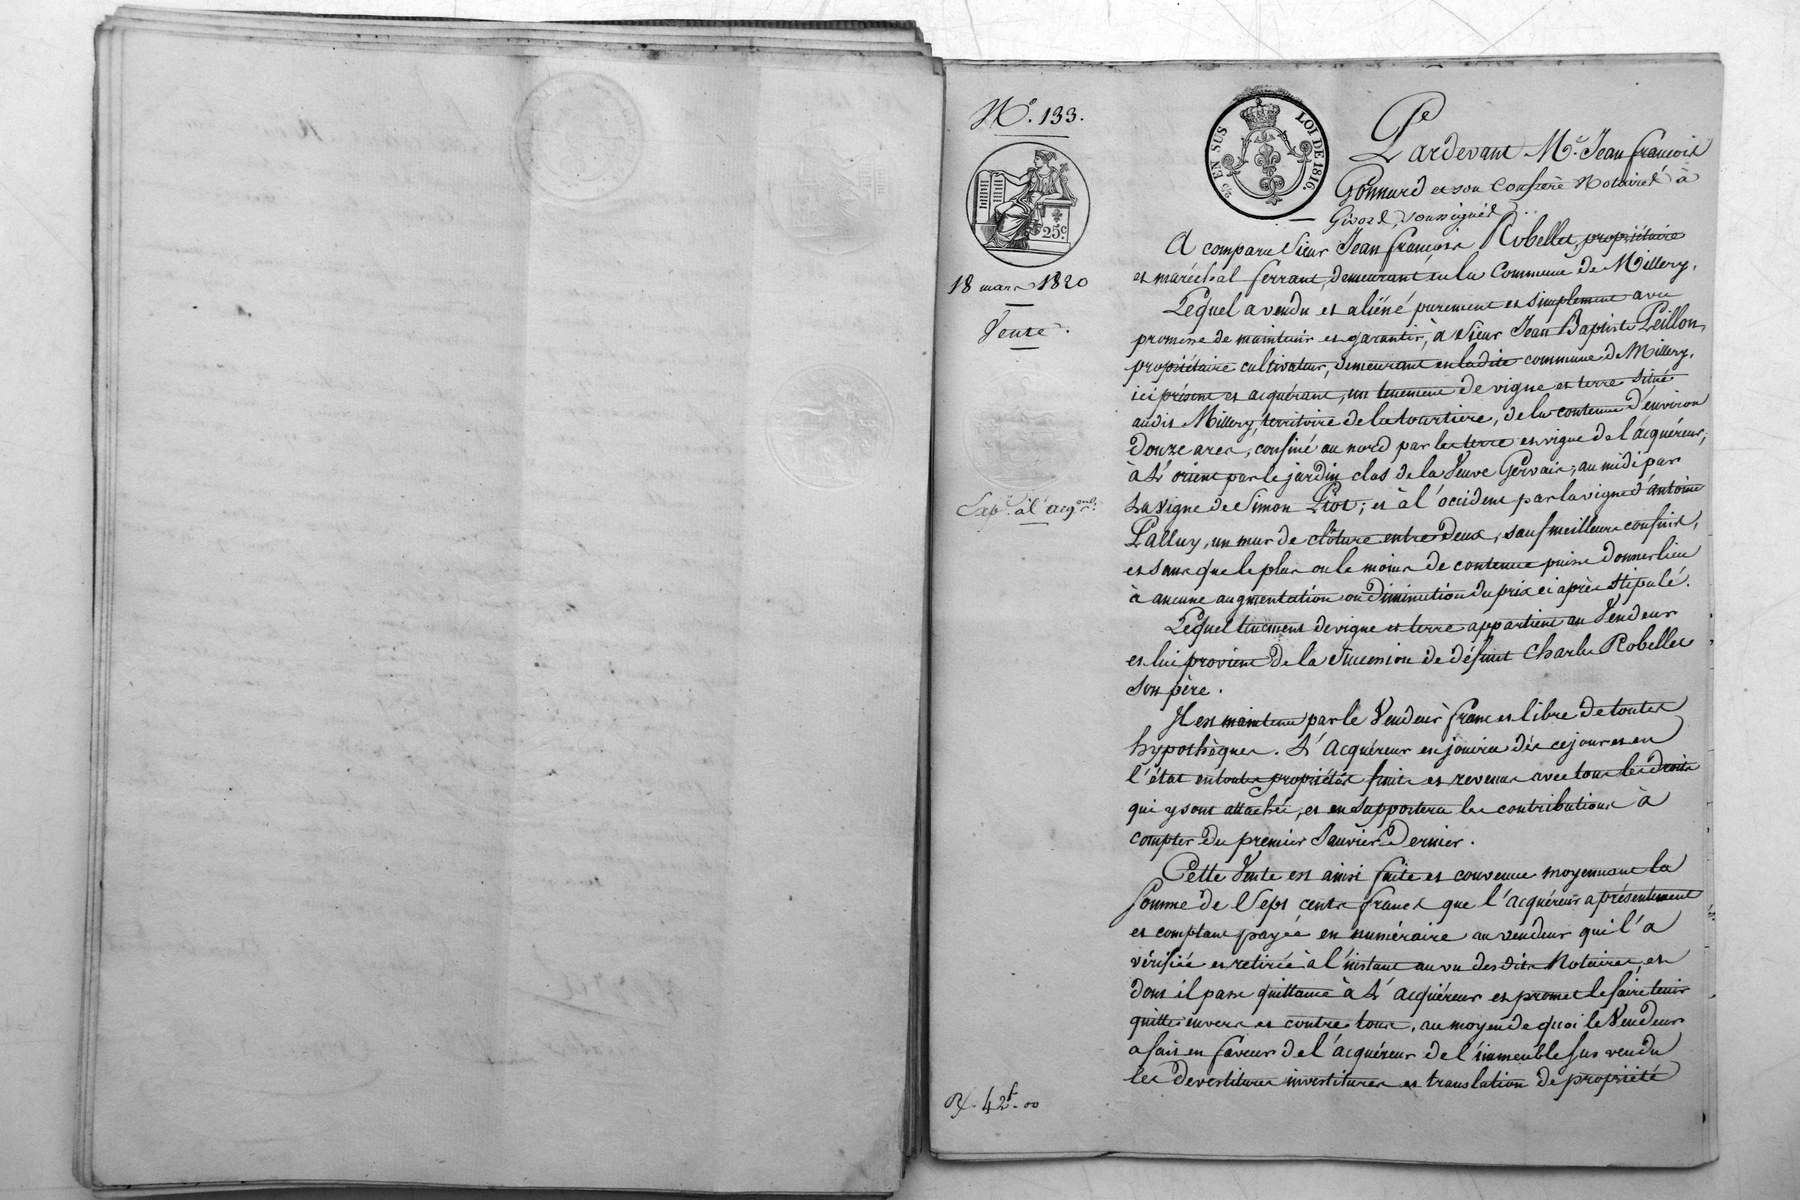 N.o 133.
EN SUS LOI DE 1816.
25c
18 mars 1820
Vente.
Exp.on à l'acq.
R. 42f.00
Pardevant M.e Jean françois
Gonnard et son Confrère Notaires à
Givors, soussignés
A comparu Sieur Jean françois Robellet, propriétaire
et maréchal ferrant, demeurant en la Commune de Millery.
Lequel a vendu et aliéné purement et simplement avec
promesse de maintenir et garantir, à Sieur Jean Baptiste Peillon,
propriétaire cultivateur, demeurant en ladite commune de Millery,
ici présent et acquérant, un tenement de vigne et terre situé
audit Millery, territoire de la tourtiere, de la contenue d'environ
douze ares, confiné au nord par les terre et vigne de l'acquéreur;
à L'orient par le jardin clos de la Veuve Gervais; au midi par
La vigne de Simon Piot; et à l'occident par la vigne d'antoine
Palluy, un mur de clôture entre deux, sauf meilleurs confins,
et sans que le plus ou le moins de contenue puisse donner lieu
à aucune augmentation ou diminution du prix ci après stipulé.
Lequel tenement de vigne et terre appartient au Vendeur
et lui provient de la succession de défunt Charles Robellet
son père.
Il est maintenu par le Vendeur franc et libre de toutes
hypothèques. L'acquéreur en jouira dès ce jour et en
l'état en toutes propriétés fruits et revenus avec tous les droits
qui y sont attachés, et en supportera les contributions à
compter du premier Janvier dernier.
Cette Vente est ainsi faite et convenue moyennant la
somme de Sept cents francs que l'acquéreur a présentement
et comptant payée en numéraire au vendeur qui l'a
vérifiée et retirée à l'instant au vu des dits Notaires, et
dont il passe quittance à L'acquéreur et promet le faire tenir
quitte envers et contre tous, au moyen de quoi le Vendeur
a fait en faveur de l'acquéreur de l'immeuble sus vendu
les devestitures investitures et translation de propriété